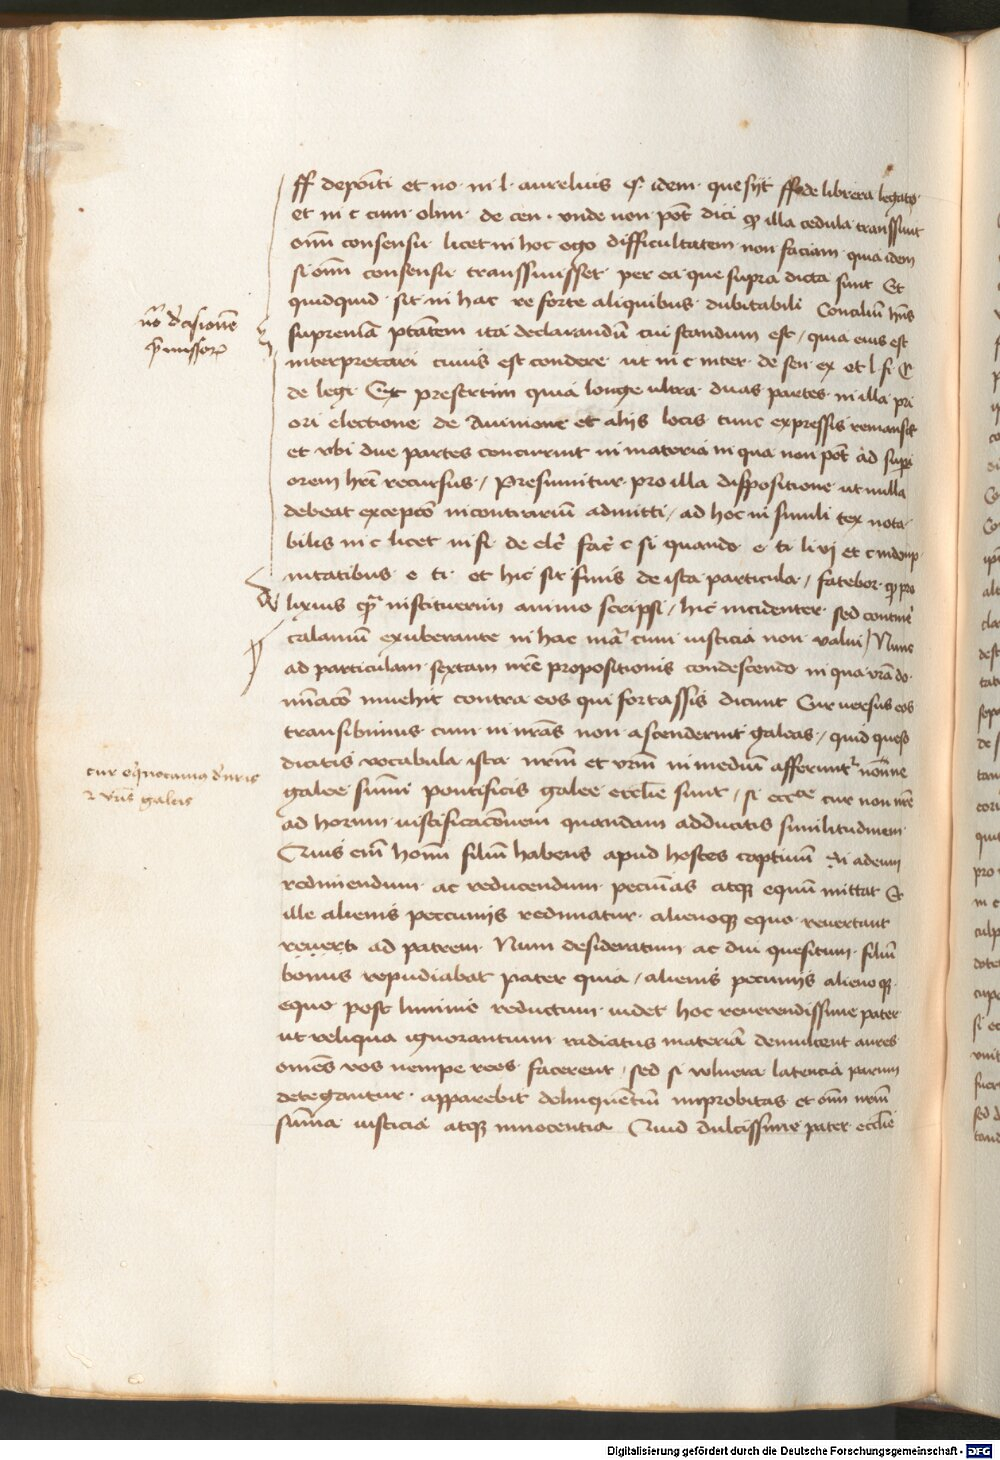 ff depoīti et no. in l. aurelius §. idem. quesijt ff de libera legata.
et in c cum olim. de cen. vnde non pōt dici ꝙ illa cedula transsiuit
om̄i consensu licet in hoc ego difficultatem non faciam. quia idem
si om̄i consensu transsiuisset per ea que supra dicta sunt Et
quidquid sit in hac re forte aliquibus dubitabili Conciliū hn̄s
supremā ptātem ita declarandū cui standum est / quia eius est
nō decisionē
p̄missorꝝ
interpretari cuius est condere ut in c inter. de sen. ex et l. fi. C
de legi. Et presertim quia longe ultra duas partes in illa pri
ori electione de Auinione et alijs locis tunc expressis remansit
et vbi due partes concurrunt in materia in qua non pōt ad superi
orem hr̄i recursus / Presumitur pro illa dispositione ut nulla
debeat exceptō incontrariū admitti / ad hoc in simili tex nota
bilis in c licet in fi de elc̄ fac̄ c si quando e ti li vj et c indemp
nitatibus e ti. et hic sit finis de ista particula / fatebor ꝙ pro
lixius q̄ institueram animo scripsi / hic incidenter sed continē
calamum exuberante in hac mā cum iusticia non valui / Nunc
ad particulam sextam vr̄e propositionis condescendo in qua vr̄a do
minacō inuehit contra eos qui fortassis dicunt Cur versus eos
transibimus cum in nr̄as non ascenderint galeas / quid queso
dicatis vocabula ista nr̄m et vr̄m in medium afferunt nōnne
cur
galeis
galee sūmi pontificis galee eccl̄ie sunt / si eccl̄ie cur non nr̄e
ad horum iustificacōnem quandam adducitis similitudinem
Quis em̄ homī filium habens apud hostes captiuū si ad eum
redimendum ac reducendum pecūias atqꝫ equū mittat Et
ille alienis peccunijs redimatur. alienoqꝫ equo reuertant
reuerti ad patrem. Num desideratum ac diu quesitum filiū
bonus repudiabat pater quia / alienis pecunijs alieno qꝫ
equo post liminio reductum videt hoc reuerendissime pater
ut reliqua ignorantium radiatus materiā demulcent aures
omēs vos nempe reos facerent / sed si vlnera latencia parum
detegantur. apparebit delinquentiū improbitas et om̄i nr̄m
sūma iusticia atqꝫ innocentia Quid dulcissime pater eccl̄ie
Digitalisierung gefördert durch die Deutsche Forschungsgemeinschaft - DFG